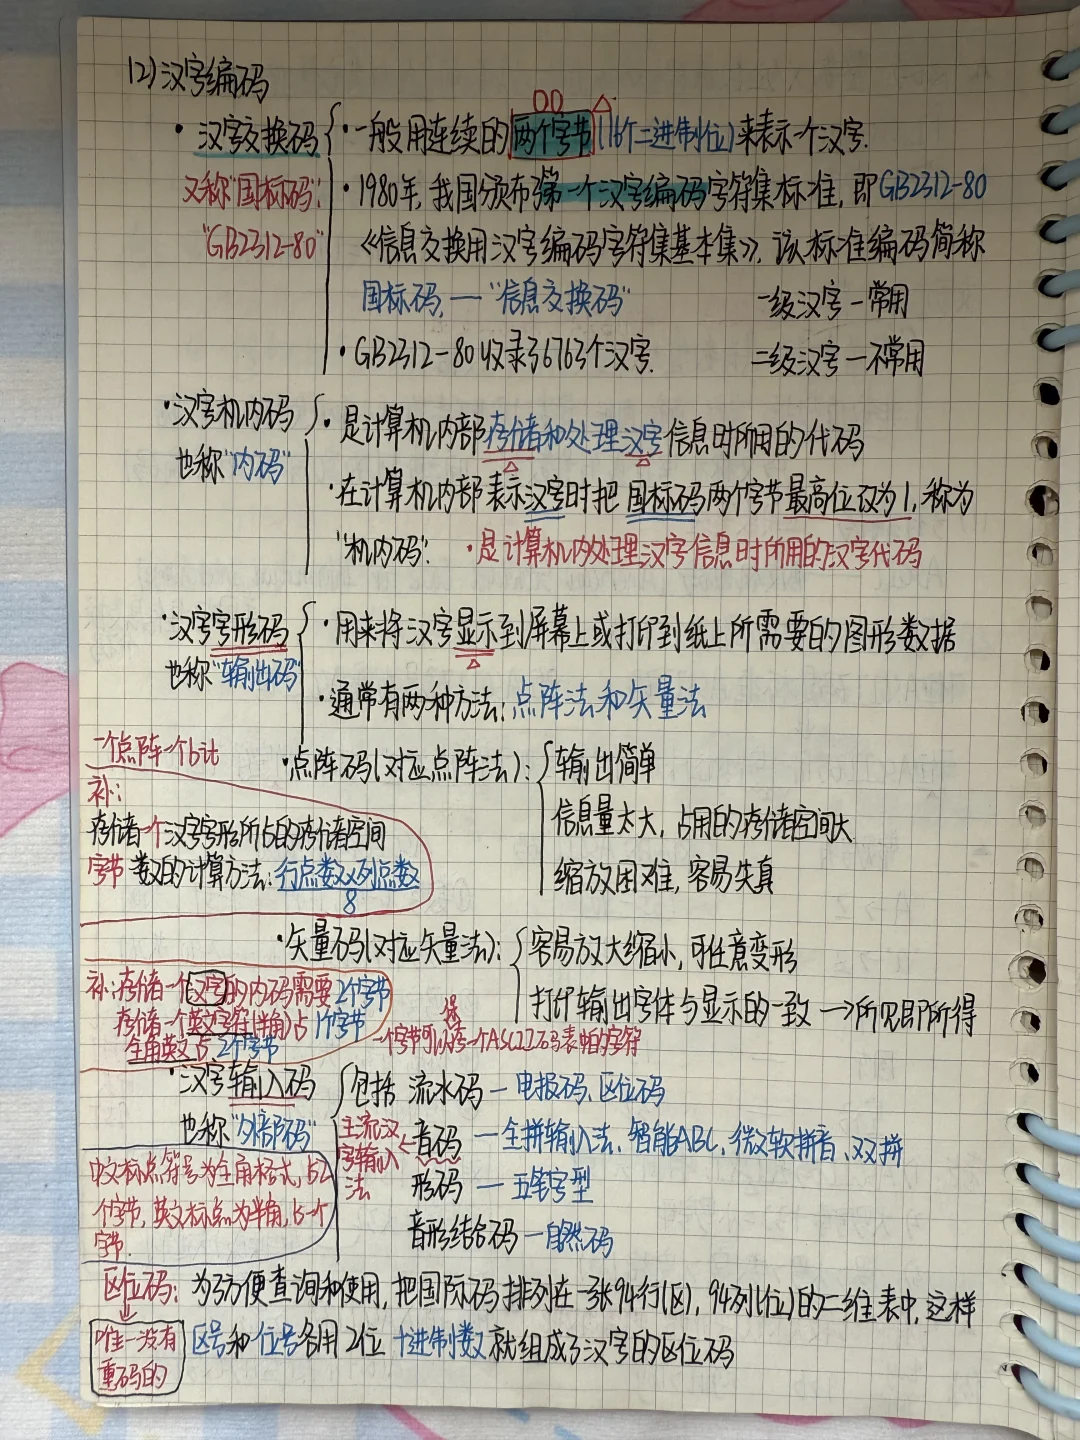 (2)汉字编码
·汉字交换码
又称"国标码"
"GB2312-80"
·一般用连续的两个字节(16个二进制位)来表示一个汉字.
·1980年,我国颁布了第一个汉字编码字符集标准,即GB2312-80
《信息交换用汉字编码字符集基本集》,该标准编码简称
国标码,—"信息交换码"
一级汉字—常用
·GB2312-80收录了6763个汉字.
二级汉字—不常用
·汉字机内码
也称"内码"
·是计算机内部存储和处理汉字信息时所用的代码
·在计算机内部表示汉字时把国标码两个字节最高位设为1,称为
"机内码".
·是计算机内处理汉字信息时所用的汉字代码
·汉字字形码
也称"输出码"
·用来将汉字显示到屏幕上或打印到纸上所需要的图形数据
·通常有两种方法:点阵法和矢量法
一个点阵一个bit
·点阵码(对应点阵法):
输出简单
信息量太大,占用的存储空间大
缩放困难,容易失真
补:
存储一个汉字字形所占的存储空间
字节数的计算方法:行点数×列点数
8
·矢量码(对应矢量法):
容易放大缩小,可任意变形
打印输出字体与显示的一致→所见即所得
补:存储一个汉字的内码需要2个字节
存储一个英文字符(半角)占1个字节
全角英文占2个字节
一个字节可以存一个ASCII码表中的字符
·汉字输入码
也称"外部码"
包括 流水码—电报码、区位码
主流汉
字输入
法
音码—全拼输入法、智能ABC,微软拼音、双拼
形码—五笔字型
音形结合码—自然码
中文标点符号为全角格式,占2
个字节,英文标点为半角,占一个
字节.
区位码:为了方便查询和使用,把国际码排列在一张94行(区),94列(位)的二维表中,这样
区号和位号各用2位十进制数就组成了汉字的区位码
唯一没有
重码的